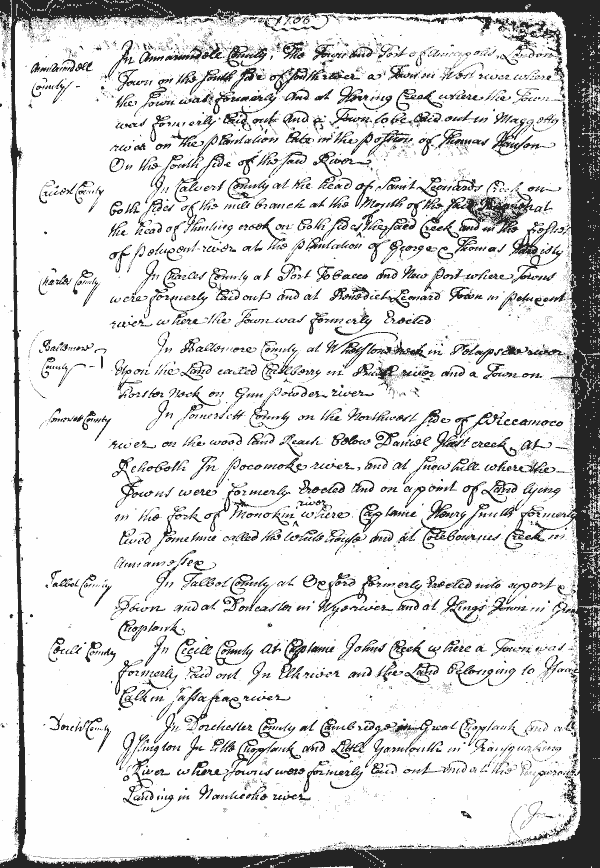 1706
Annarundell County -
In Annarundell County, The Town and Port of Annapolis, London
Town on the South side of South river a Town in West river where
the Town was formerly And at Herring Creek where the Town
was formerly laid out And a Town to be laid out in Maggotty
river on the plantation late in the possion of Thomas
On the South side of the said River
Calvert County
In Calvert County at the head of Saint Leonards Creek on
both sides of the mill branch at the Mouth of the said at
the head of Hunting creek on both sides the said Creek and in the
of petuxent river at the plantation of George & Thomas
Charles County
In Charles County at Port Tobacco and New port where Towns
were formerly laid out and at Benedict Leonard Town in petuxent
river where the Town was formerly Erected
Baltemore County -
In Baltemore County at Whetstone neck in Potapscoe river
Upon the Land called in river and a Town on
Forster Neck on Gun powder river
Somersett County
In Somersett County on the Northwest side of Wiccamoco
river on the wood land Reach below Daniell creek At
Rehoboth In pocomoke river, and at Snow hill where the
Towns were formerly Erected And on a point of Land lying
in the fork of Monokin river where Captaine Henry Smith formerly
lived sometime called the white house and at Colebournes Creek in
Annamessex
Talbot County
In Talbot County at Oxford formerly Erected into a port &
Town and at Doncaster in Wye river and at Kings Town in
Choptank
Cecill County
In Cecill County At Captaine Johns Creek where a Town was
formerly laid out In Elk river and the Land belonging to
in Sassafrax river
Dorchr County
In Dorchester County at Cambridge in Great Choptank and at
Islington In little Choptank and little Yarmouth in Transquaking
River where Towns were formerly laid out And at the Emperours
Landing in Nanticoke river
In